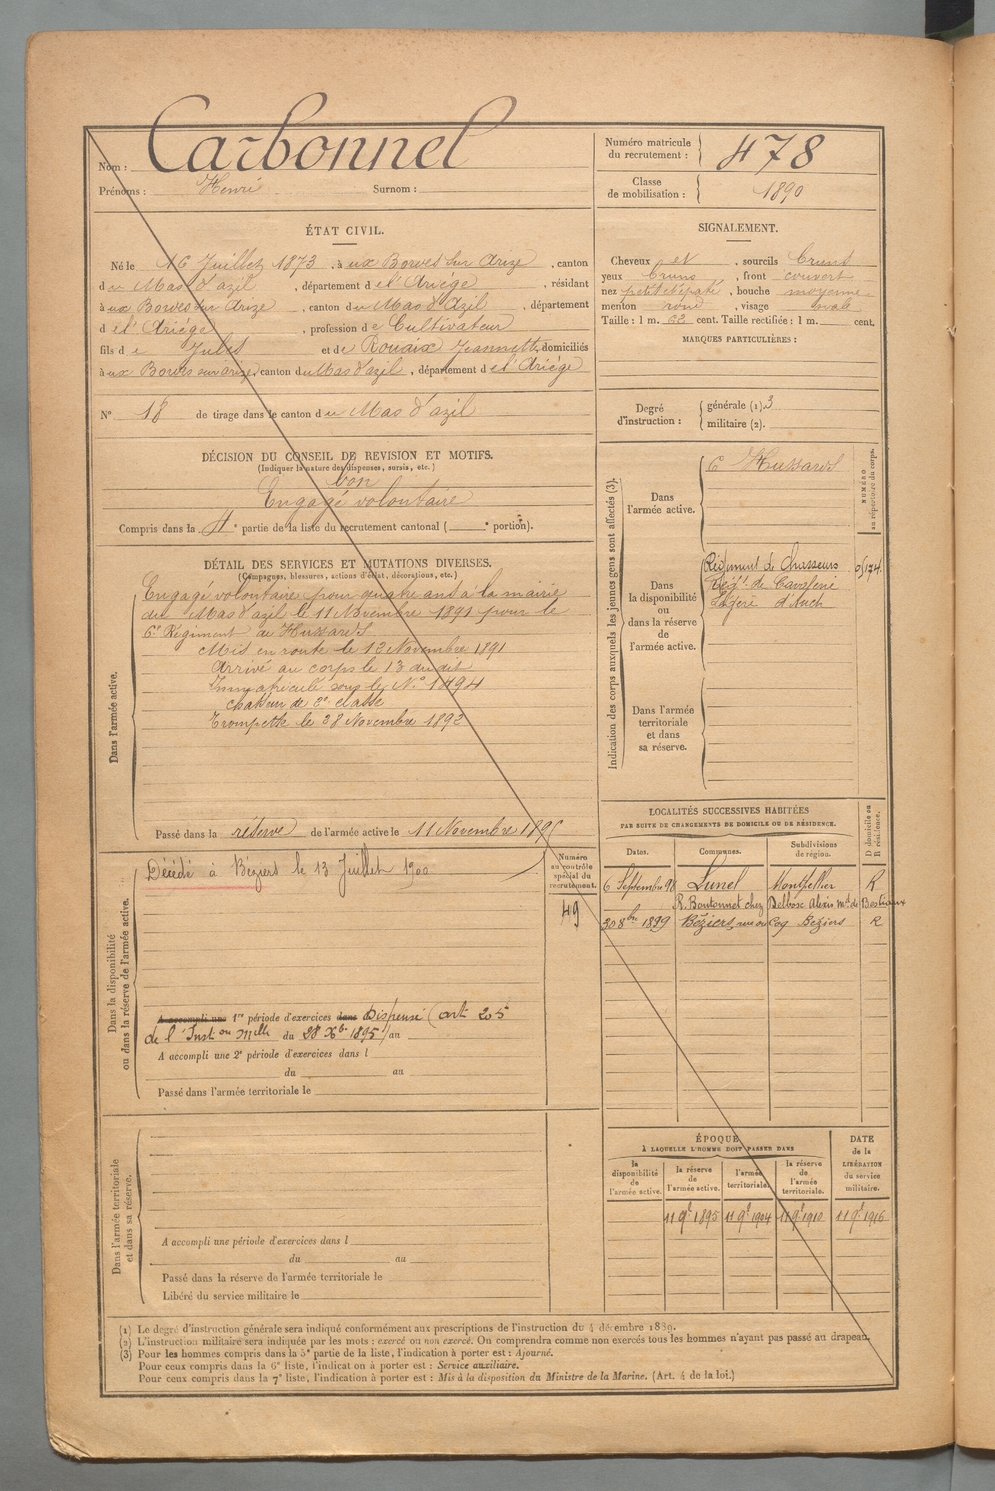 Nom : Carbonnel
Prénoms : Henri Surnom :
Numéro matricule
du recrutement : 478
Classe
de mobilisation : 1890
ÉTAT CIVIL.
Né le 16 Juillet 1873, à ux Bordes sur Arize, canton
du Mas d'azil, département de l'Ariège, résidant
à ux Bordes sur Arize, canton du Mas d'Azil, département
de l'Ariège, profession de Cultivateur
fils de Jules et de Rouaix Jeannette, domiciliés
à ux Bordes sur arize, canton du Mas d'azil, département de l'Ariège
N° 18 de tirage dans le canton du Mas d'azil
SIGNALEMENT.
Cheveux et, sourcils bruns
yeux bruns, front couvert
nez petit épaté, bouche moyenne
menton rond, visage ovale
Taille : 1 m. 62 cent. Taille rectifiée : 1 m. cent.
MARQUES PARTICULIÈRES :
Degré
d'instruction :
générale (1). 3
militaire (2).
DÉCISION DU CONSEIL DE REVISION ET MOTIFS.
(Indiquer la nature des dispenses, sursis, etc.)
bon
Engagé volontaire
Compris dans la 4e partie de la liste du recrutement cantonal ( e portion).
DÉTAIL DES SERVICES ET MUTATIONS DIVERSES.
(Campagnes, blessures, actions d'éclat, décorations, etc.)
Dans l'armée active.
Engagé volontaire pour quatre ans à la mairie
du Mas d'azil le 11 Novembre 1891 pour le
6e Régiment de Hussards
Mis en route le 12 Novembre 1891
Arrivé au corps le 13 du dit
Immatriculé sous le N° 1494
2e classe
Trompette le 28 Novembre 1892
Passé dans la réserve de l'armée active le 11 Novembre 1895
Indication des corps auxquels les jeunes gens sont affectés (3).
Dans
l'armée active.
6 Hussards
NUMÉRO
au répertoire du corps.
Dans
la disponibilité
ou
dans la réserve
de
l'armée active.
Régiment de Chasseurs
Régt. de Cavalerie
Légère d'Auch
Dans l'armée
territoriale
et dans
sa réserve.
Dans la disponibilité
ou dans la réserve de l'armée active.
Décédé à Béziers le 13 Juillet 1900
Numéro
au contrôle
spécial du
recrutement.
49
A accompli une 1re période d'exercices dans Dispensé (art. 205
de l'Inston Mlle du 28 Xbre 1895) au
A accompli une 2e période d'exercices dans l
du au
Passé dans l'armée territoriale le
LOCALITÉS SUCCESSIVES HABITÉES
PAR SUITE DE CHANGEMENTS DE DOMICILE OU DE RÉSIDENCE.
Dates. Communes. Subdivisions
de région. D domicile ou
R résidence.
6 Septembre 98 Lunel Montpellier R
R. Boutonnet chez Delbosc Alexis md de Bestiaux
30 8bre 1899 Béziers, rue du Coq Béziers R
Dans l'armée territoriale
et dans sa réserve.
A accompli une période d'exercices dans l
du au
Passé dans la réserve de l'armée territoriale le
Libéré du service militaire le
ÉPOQUE
À LAQUELLE L'HOMME DOIT PASSER DANS
la
disponibilité
de
l'armée active.
la réserve
de
l'armée active.
l'armée
territoriale.
la réserve
de
l'armée
territoriale.
DATE
de la
LIBÉRATION
du service
militaire.
11 9bre 1895 11 9bre 1904 11 9bre 1910 11 9bre 1916
(1) Le degré d'instruction générale sera indiqué conformément aux prescriptions de l'instruction du 4 décembre 1889.
(2) L'instruction militaire sera indiquée par les mots : exercé ou non exercé. On comprendra comme non exercés tous les hommes n'ayant pas passé au drapeau.
(3) Pour les hommes compris dans la 5e partie de la liste, l'indication à porter est : Ajourné.
Pour ceux compris dans la 6e liste, l'indication à porter est : Service auxiliaire.
Pour ceux compris dans la 7e liste, l'indication à porter est : Mis à la disposition du Ministre de la Marine. (Art. 4 de la loi.)